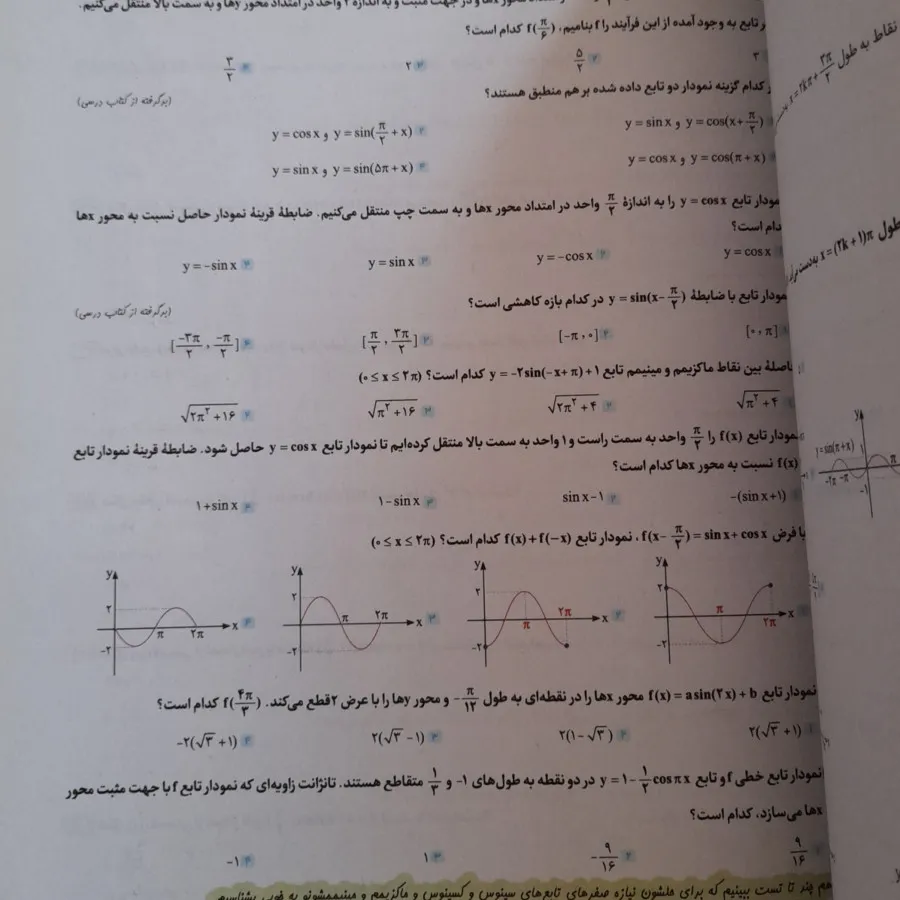 محور xها و در جهت مثبت و به اندازه ۲ واحد در امتداد محور yها و به سمت بالا منتقل می‌کنیم.
تابع به وجود آمده از این فرآیند را f بنامیم، f(π/۶) کدام است؟
۳ ۲ ۵/۲ ۳ ۲ ۴ ۳/۲
کدام گزینه نمودار دو تابع داده شده بر هم منطبق هستند؟ (برگرفته از کتاب درسی)
y = sin x و y = cos(x + π/۲) ۲ y = cos x و y = sin(π/۲ + x)
y = cos x و y = cos(π + x) ۴ y = sin x و y = sin(۵π + x)
نمودار تابع y = cos x را به اندازهٔ π/۲ واحد در امتداد محور xها و به سمت چپ منتقل می‌کنیم. ضابطهٔ قرینهٔ نمودار حاصل نسبت به محور xها
کدام است؟
y = cos x ۲ y = -cos x ۳ y = sin x ۴ y = -sin x
نمودار تابع با ضابطهٔ y = sin(x - π/۲) در کدام بازه کاهشی است؟ (برگرفته از کتاب درسی)
۱ [۰, π] ۲ [-π, ۰] ۳ [π/۲, ۳π/۲] ۴ [-۳π/۲, -π/۲]
فاصلهٔ بین نقاط ماکزیمم و مینیمم تابع y = -۲sin(-x + π) + ۱ کدام است؟ (۰ ≤ x ≤ ۲π)
√(π² + ۴) ۲ √(۲π² + ۴) ۳ √(π² + ۱۶) ۴ √(۲π² + ۱۶)
نمودار تابع f(x) را π/۲ واحد به سمت راست و ۱ واحد به سمت بالا منتقل کرده‌ایم تا نمودار تابع y = cos x حاصل شود. ضابطهٔ قرینهٔ نمودار تابع
f(x) نسبت به محور xها کدام است؟
-(sin x + ۱) ۲ sin x - ۱ ۳ ۱ - sin x ۴ ۱ + sin x
با فرض f(x - π/۲) = sin x + cos x، نمودار تابع f(x) + f(-x) کدام است؟ (۰ ≤ x ≤ ۲π)
y ۲ -۲ π ۲π x ۱
y ۲ -۲ π ۲π x ۲
y ۲ -۲ π ۲π x ۳
y ۲ -۲ π ۲π x ۴
نمودار تابع f(x) = a sin(۲x) + b محور xها را در نقطه‌ای به طول -π/۱۲ و محور yها را با عرض ۲ قطع می‌کند. f(۴π/۳) کدام است؟
۲(√۳ + ۱) ۲ ۲(۱ - √۳) ۳ ۲(√۳ - ۱) ۴ -۲(√۳ + ۱)
نمودار تابع خطی f و تابع y = ۱ - ۱/۲ cos πx در دو نقطه به طول‌های ۱- و ۱/۳ متقاطع هستند. تانژانت زاویه‌ای که نمودار تابع f با جهت مثبت محور
xها می‌سازد، کدام است؟
۹/۱۶ ۲ -۹/۱۶ ۳ ۱ ۴ -۱
هم چند تا تست ببینیم که برای حلشون نیازه صفرهای تابع‌های سینوس و کسینوس و ماکزیمم و مینیممشونو به خوبی بشناسیم
نقاط به طول
x = ۲kπ + ۳π/۲
طول x = (۲k + ۱)π به‌دست
y
y = sin(π + x)
۱
-۲π -π π
-۱